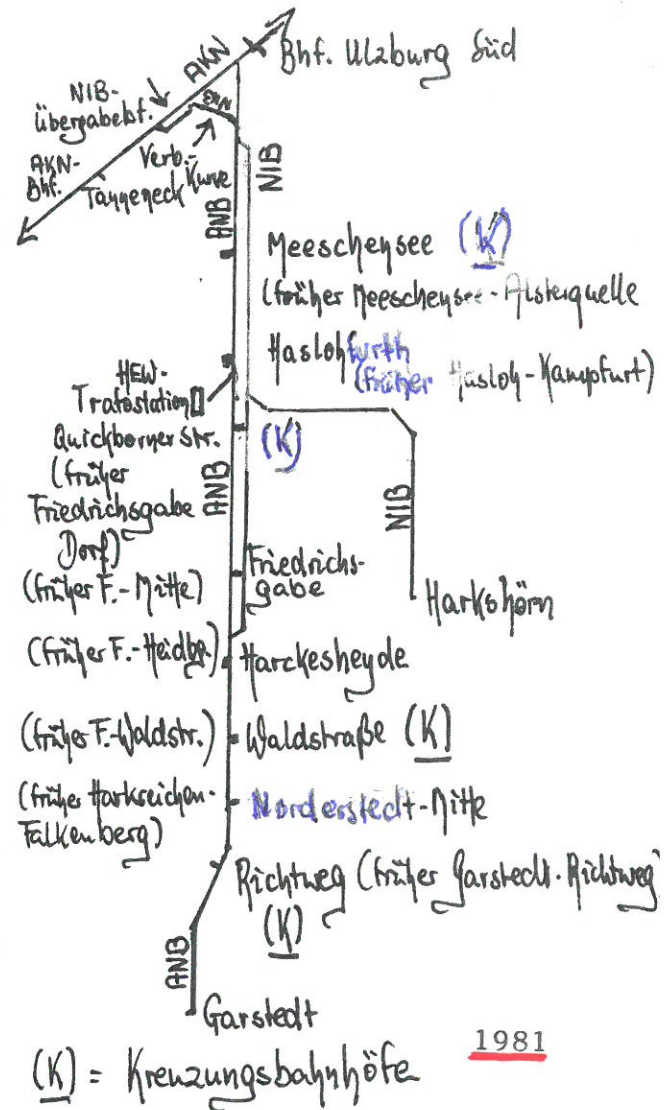 AKN
Bhf. Ulzburg Süd
NIB-
Übergabebf.
AKN
Verb.-
Kurve
AKN-
Bhf.
Tanneneck
NIB
ANB
Meeschensee (K)
(früher Meeschensee-Alsterquelle
Haslohfurth
(früher Hasloh-Kampfurt)
HEW-
Trafostation
Quickborner Str.
(K)
(früher
Friedrichsgabe
Dorf)
ANB
NIB
Harkshörn
(früher F.-Mitte)
Friedrichs-
gabe
(früher F.-Heidbg.)
Harckesheyde
(früher F.-Waldstr.)
Waldstraße (K)
(früher Harkseichen-
Falkenberg)
Norderstedt-Mitte
Richtweg (früher Garstedt-Richtweg)
(K)
ANB
Garstedt
1981
(K) = Kreuzungsbahnhöfe